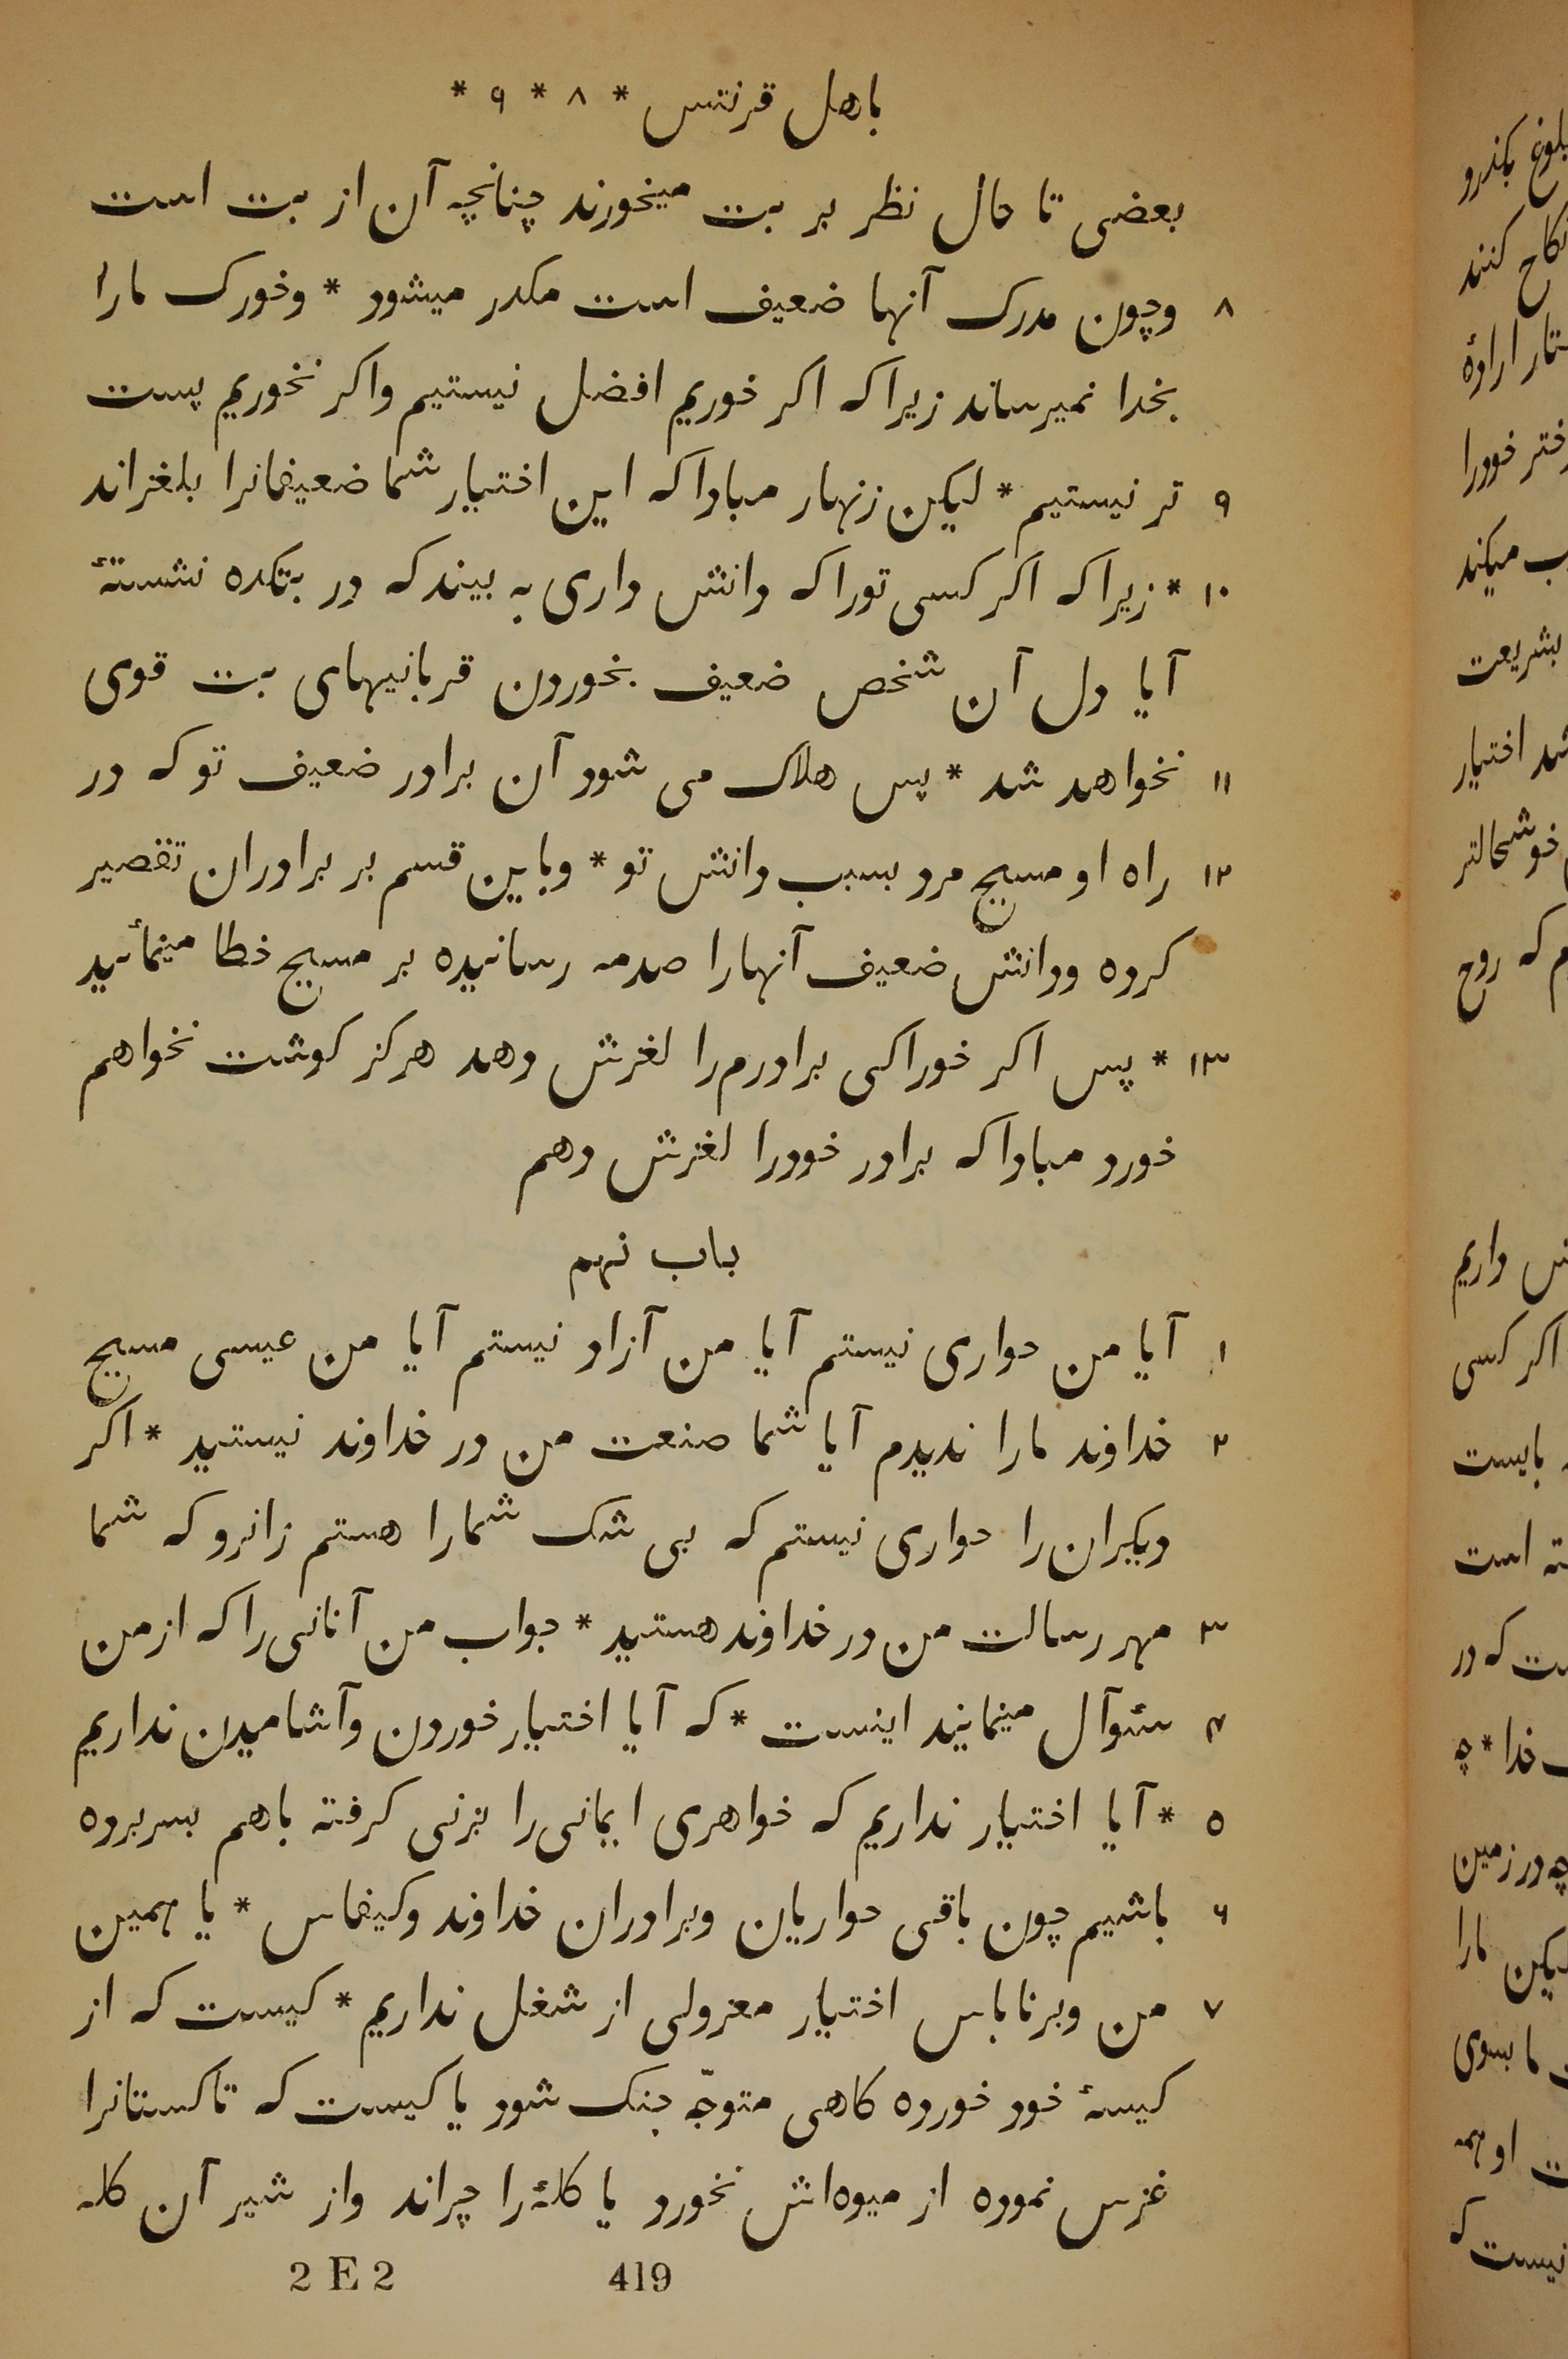 باهل قرنتس * ۸ * ۹ *
بعضی تا حال نظر بر بت میخورند چنانچه آن از بت است
۸ وچون مدرک آنها ضعیف است مکدر میشود * وخورک مارا
بخدا نمیرساند زیراکه اکر خوریم افضل نیستیم واکر نخوریم پست
۹ تر نیستیم * لیکن زنهار مباداکه این اختیار شما ضعیفانرا بلغزاند
۱۰ * زیراکه اکر کسی توراکه دانش داری به بیندکه در بتکده نشستهٔ
آیا دل آن شخص ضعیف بخوردن قربانیهای بت قوی
۱۱ نخواهد شد * پس هلاک می شود آن برادر ضعیف توکه در
۱۲ راه او مسیح مرد بسبب دانش تو * وباین قسم بر برادران تقصیر
کرده ودانش ضعیف آنهارا صدمه رسانیده بر مسیح خطا مینمائید
۱۳ * پس اکر خوراکی برادرم را لغزش دهد هرکز کوشت نخواهم
خورد مباداکه برادر خودرا لغزش دهم
باب نهم
۱ آیا من حواری نیستم آیا من آزاد نیستم آیا من عیسی مسیح
۲ خداوند مارا ندیدم آیا شما صنعت من در خداوند نیستید * اکر
دیکران را حواری نیستم که بی شک شمارا هستم زانروکه شما
۳ مهر رسالت من در خداوند هستید * جواب من آنانی راکه ازمن
۴ سئوآل مینمایند اینست * که آیا اختیار خوردن وآشامیدن نداریم
۵ * آیا اختیار نداریم که خواهری ایمانی را بزنی کرفته باهم بسربرده
۶ باشیم چون باقی حواریان وبرادران خداوند وکیفاس * یا همین
۷ من وبرناباس اختیار معزولی از شغل نداریم * کیست که از
کیسهٔ خود خورده کاهی متوجّه جنک شود یا کیست که تاکستانرا
غرس نموده از میوه‌اش نخورد یا کلهٔ را چراند واز شیر آن کله
2 E 2 419